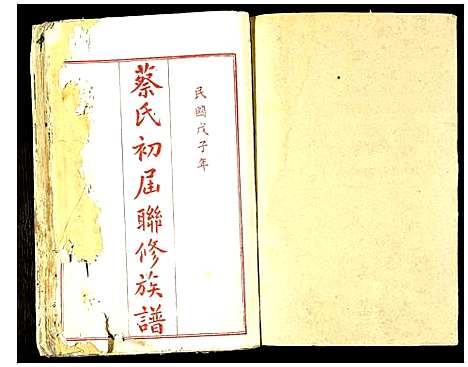 民國戊子年
蔡氏初屆聯修族譜